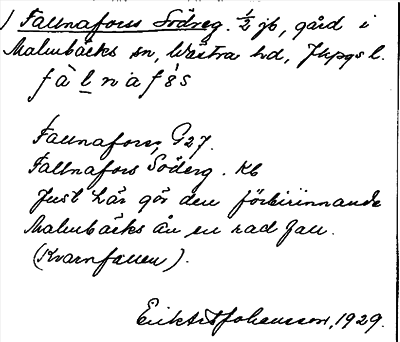 Fallnafors Södreg. 1/2 jb, gård i
Malmbäcks sn, Västra hd, Jkpgs l.
fàl̲nafó̀s
Fallnafors, G27.
Fallnafors Söderg. Kb
Just här gör den förbirinnande
Malmbäcks ån en rad fall.
(Kvarnfallen).
Erik A Johansson, 1929.